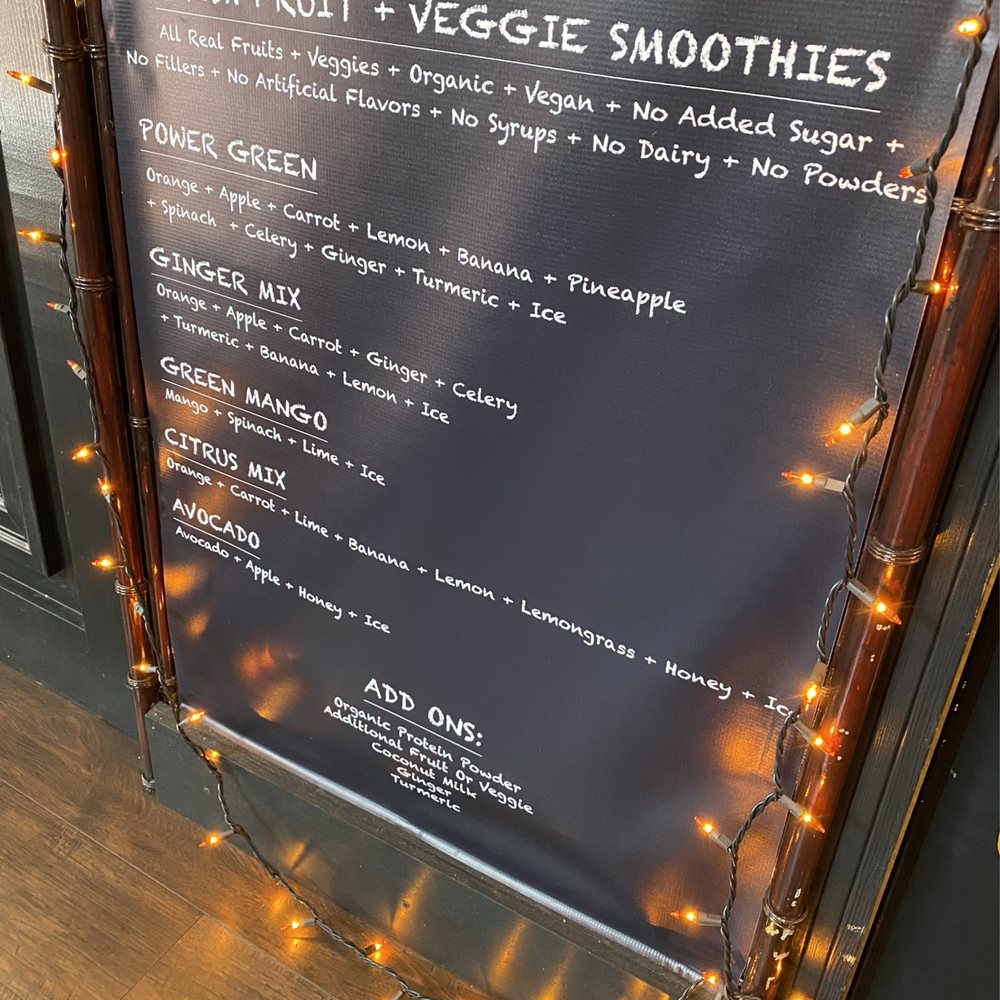 FRUIT + VEGGIE SMOOTHIES
All Real Fruits + Veggies + Organic + Vegan + No Added Sugar +
No Fillers + No Artificial Flavors + No Syrups + No Dairy + No Powders
POWER GREEN
Orange + Apple + Carrot + Lemon + Banana + Pineapple
+ Spinach + Celery + Ginger + Turmeric + Ice
GINGER MIX
Orange + Apple + Carrot + Ginger + Celery
+ Turmeric + Banana + Lemon + Ice
GREEN MANGO
Mango + Spinach + Lime + Ice
CITRUS MIX
Orange + Carrot + Lime + Banana + Lemon + Lemongrass + Honey + Ice
AVOCADO
Avocado + Apple + Honey + Ice
ADD ONS:
Organic Protein Powder
Additional Fruit Or Veggie
Coconut Milk
Ginger
Turmeric